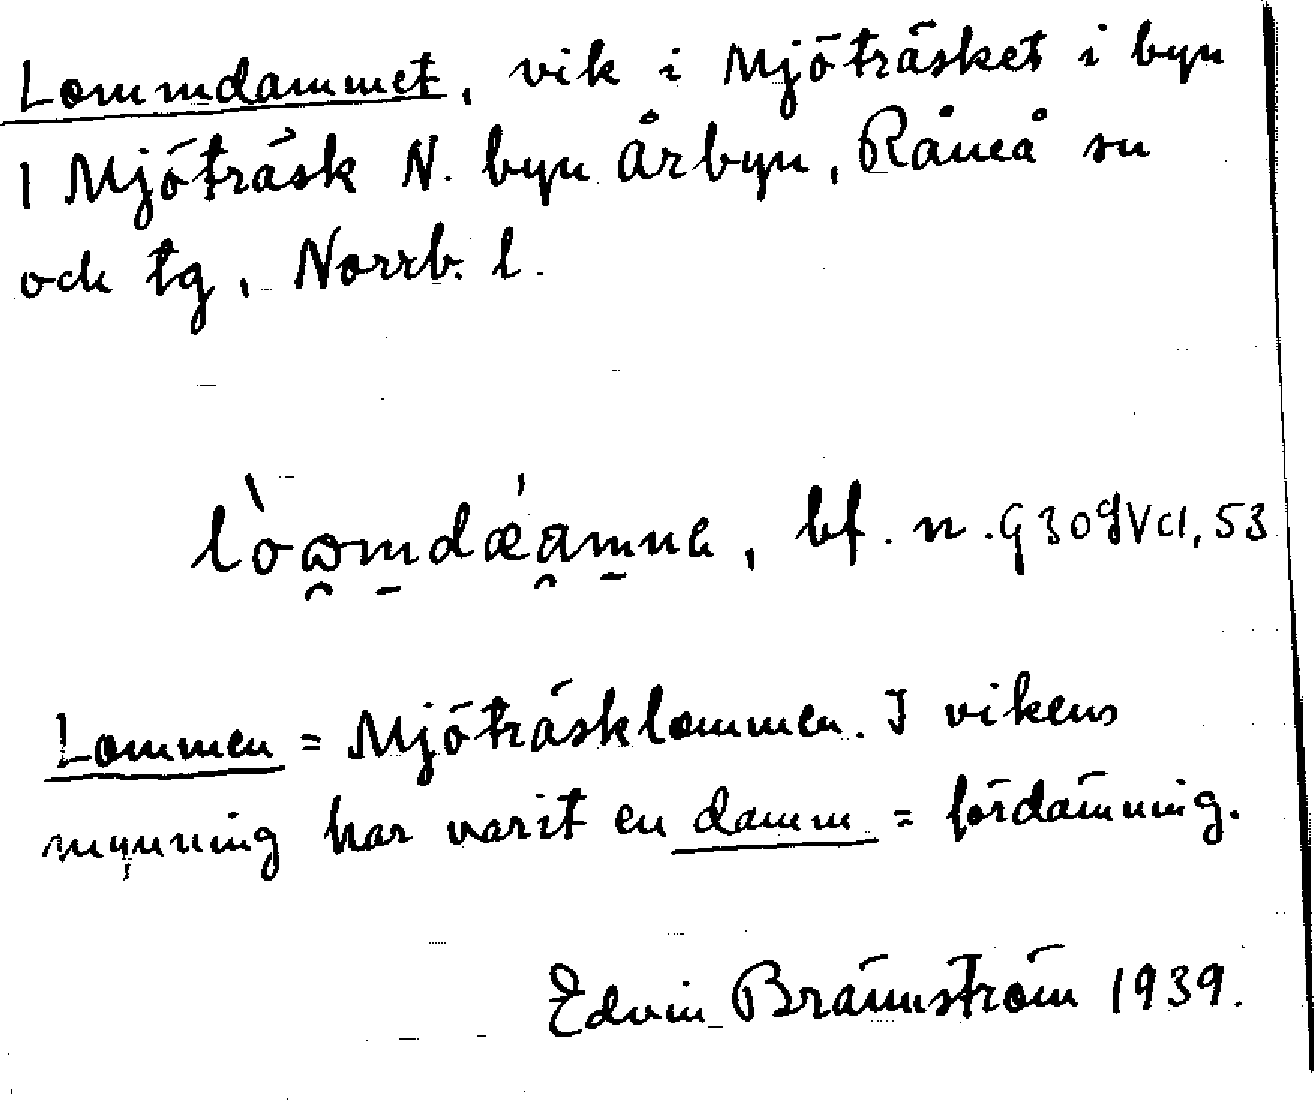 Lommdammet, vik i Mjöträsket i byn
1 Mjöträsk N. byn Årbyn, Råneå sn
och tg, Norrb. l.
bf. n.
Lommen = Mjöträsklommen. I vikens
mynning har varit en damm = fördämning.
Edvin Brännström 1939.